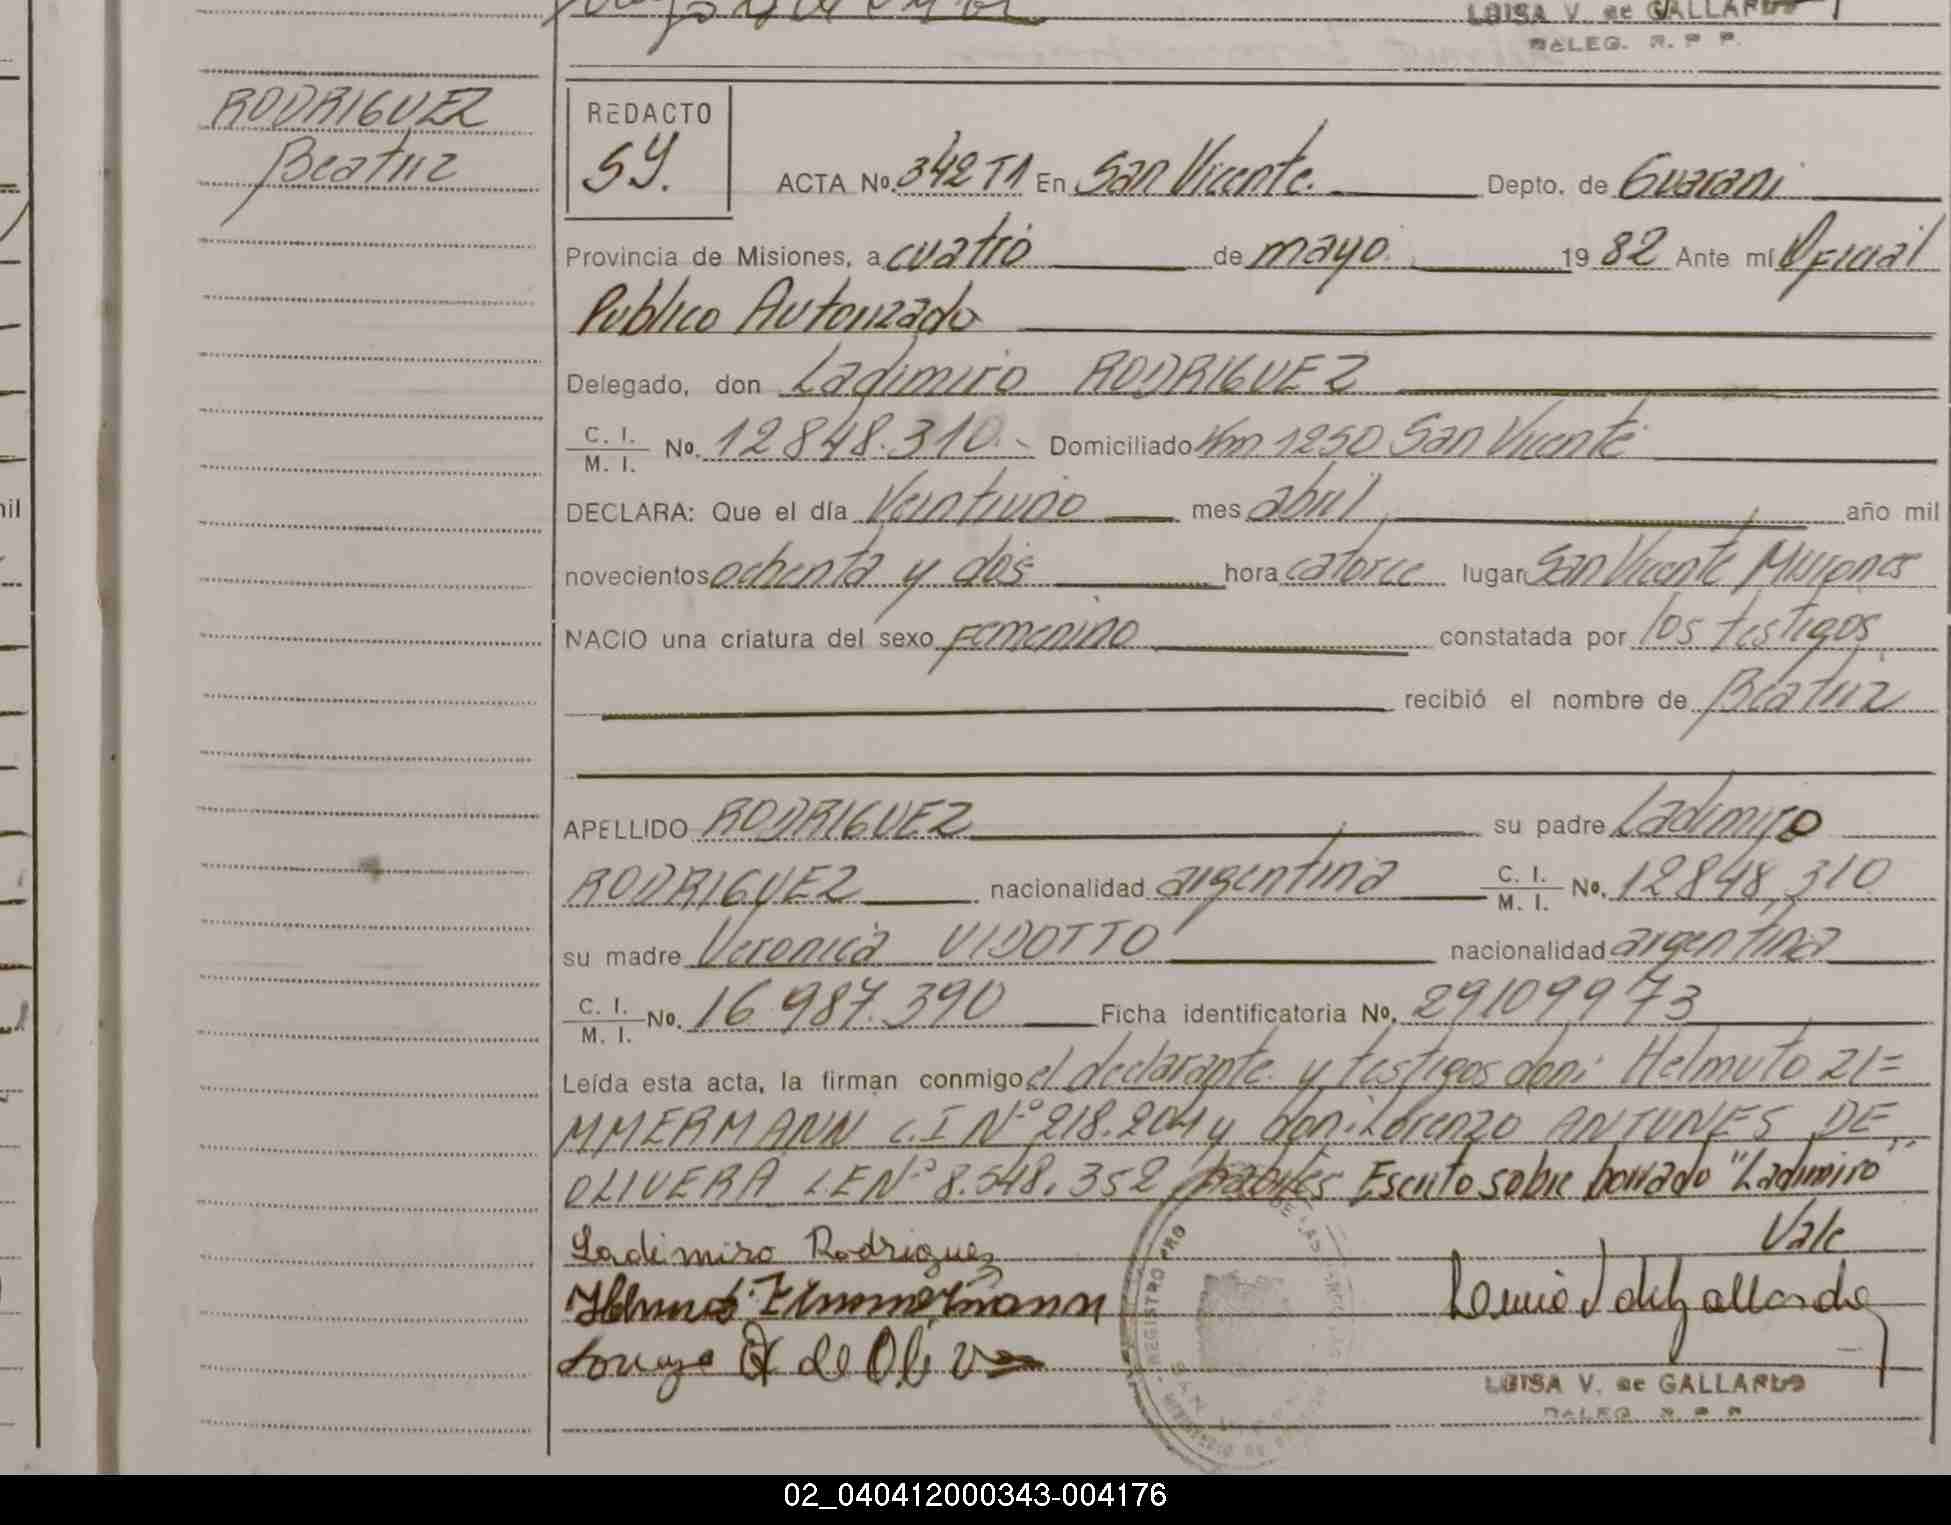 LUISA V. de GALLARDO
DELEG. R. P. P.
RODRIGUEZ
Beatriz
REDACTO
SY.
ACTA No. 342 T1 En San Vicente. Depto. de Guarani
Provincia de Misiones, a cuatro de mayo 1982 Ante mí Oficial
Publico Autorizado
Delegado, don Ladimiro RODRIGUEZ
C. I. / M. I. No. 12848.310. Domiciliado Km 1250 San Vicente
DECLARA: Que el día Veintiuno mes abril año mil
novecientos ochenta y dos hora catorce lugar San Vicente Misiones
NACIO una criatura del sexo Femenino constatada por los testigos
recibió el nombre de Beatriz
APELLIDO RODRIGUEZ su padre Ladimiro
RODRIGUEZ nacionalidad argentina C. I. / M. I. No. 12848,310
su madre Veronica VIDOTTO nacionalidad argentina
C. I. / M. I. No. 16.987.390 Ficha identificatoria No. 29109973
Leída esta acta, la firman conmigo el declarante y testigos don: Helmuto ZI=
MMERMANN C.I Nº 218.204 y don: Lorenzo ANTUNES DE
OLIVERA L.E Nº 8.548.352 habiles Escrito sobre borrado "Ladimiro"
Vale
Ladimiro Rodriguez
Helmut Zimmermann
REGISTRO PRO DE LAS
LUISA V. de GALLARDO
DELEG. R. P. P.
02_040412000343-004176